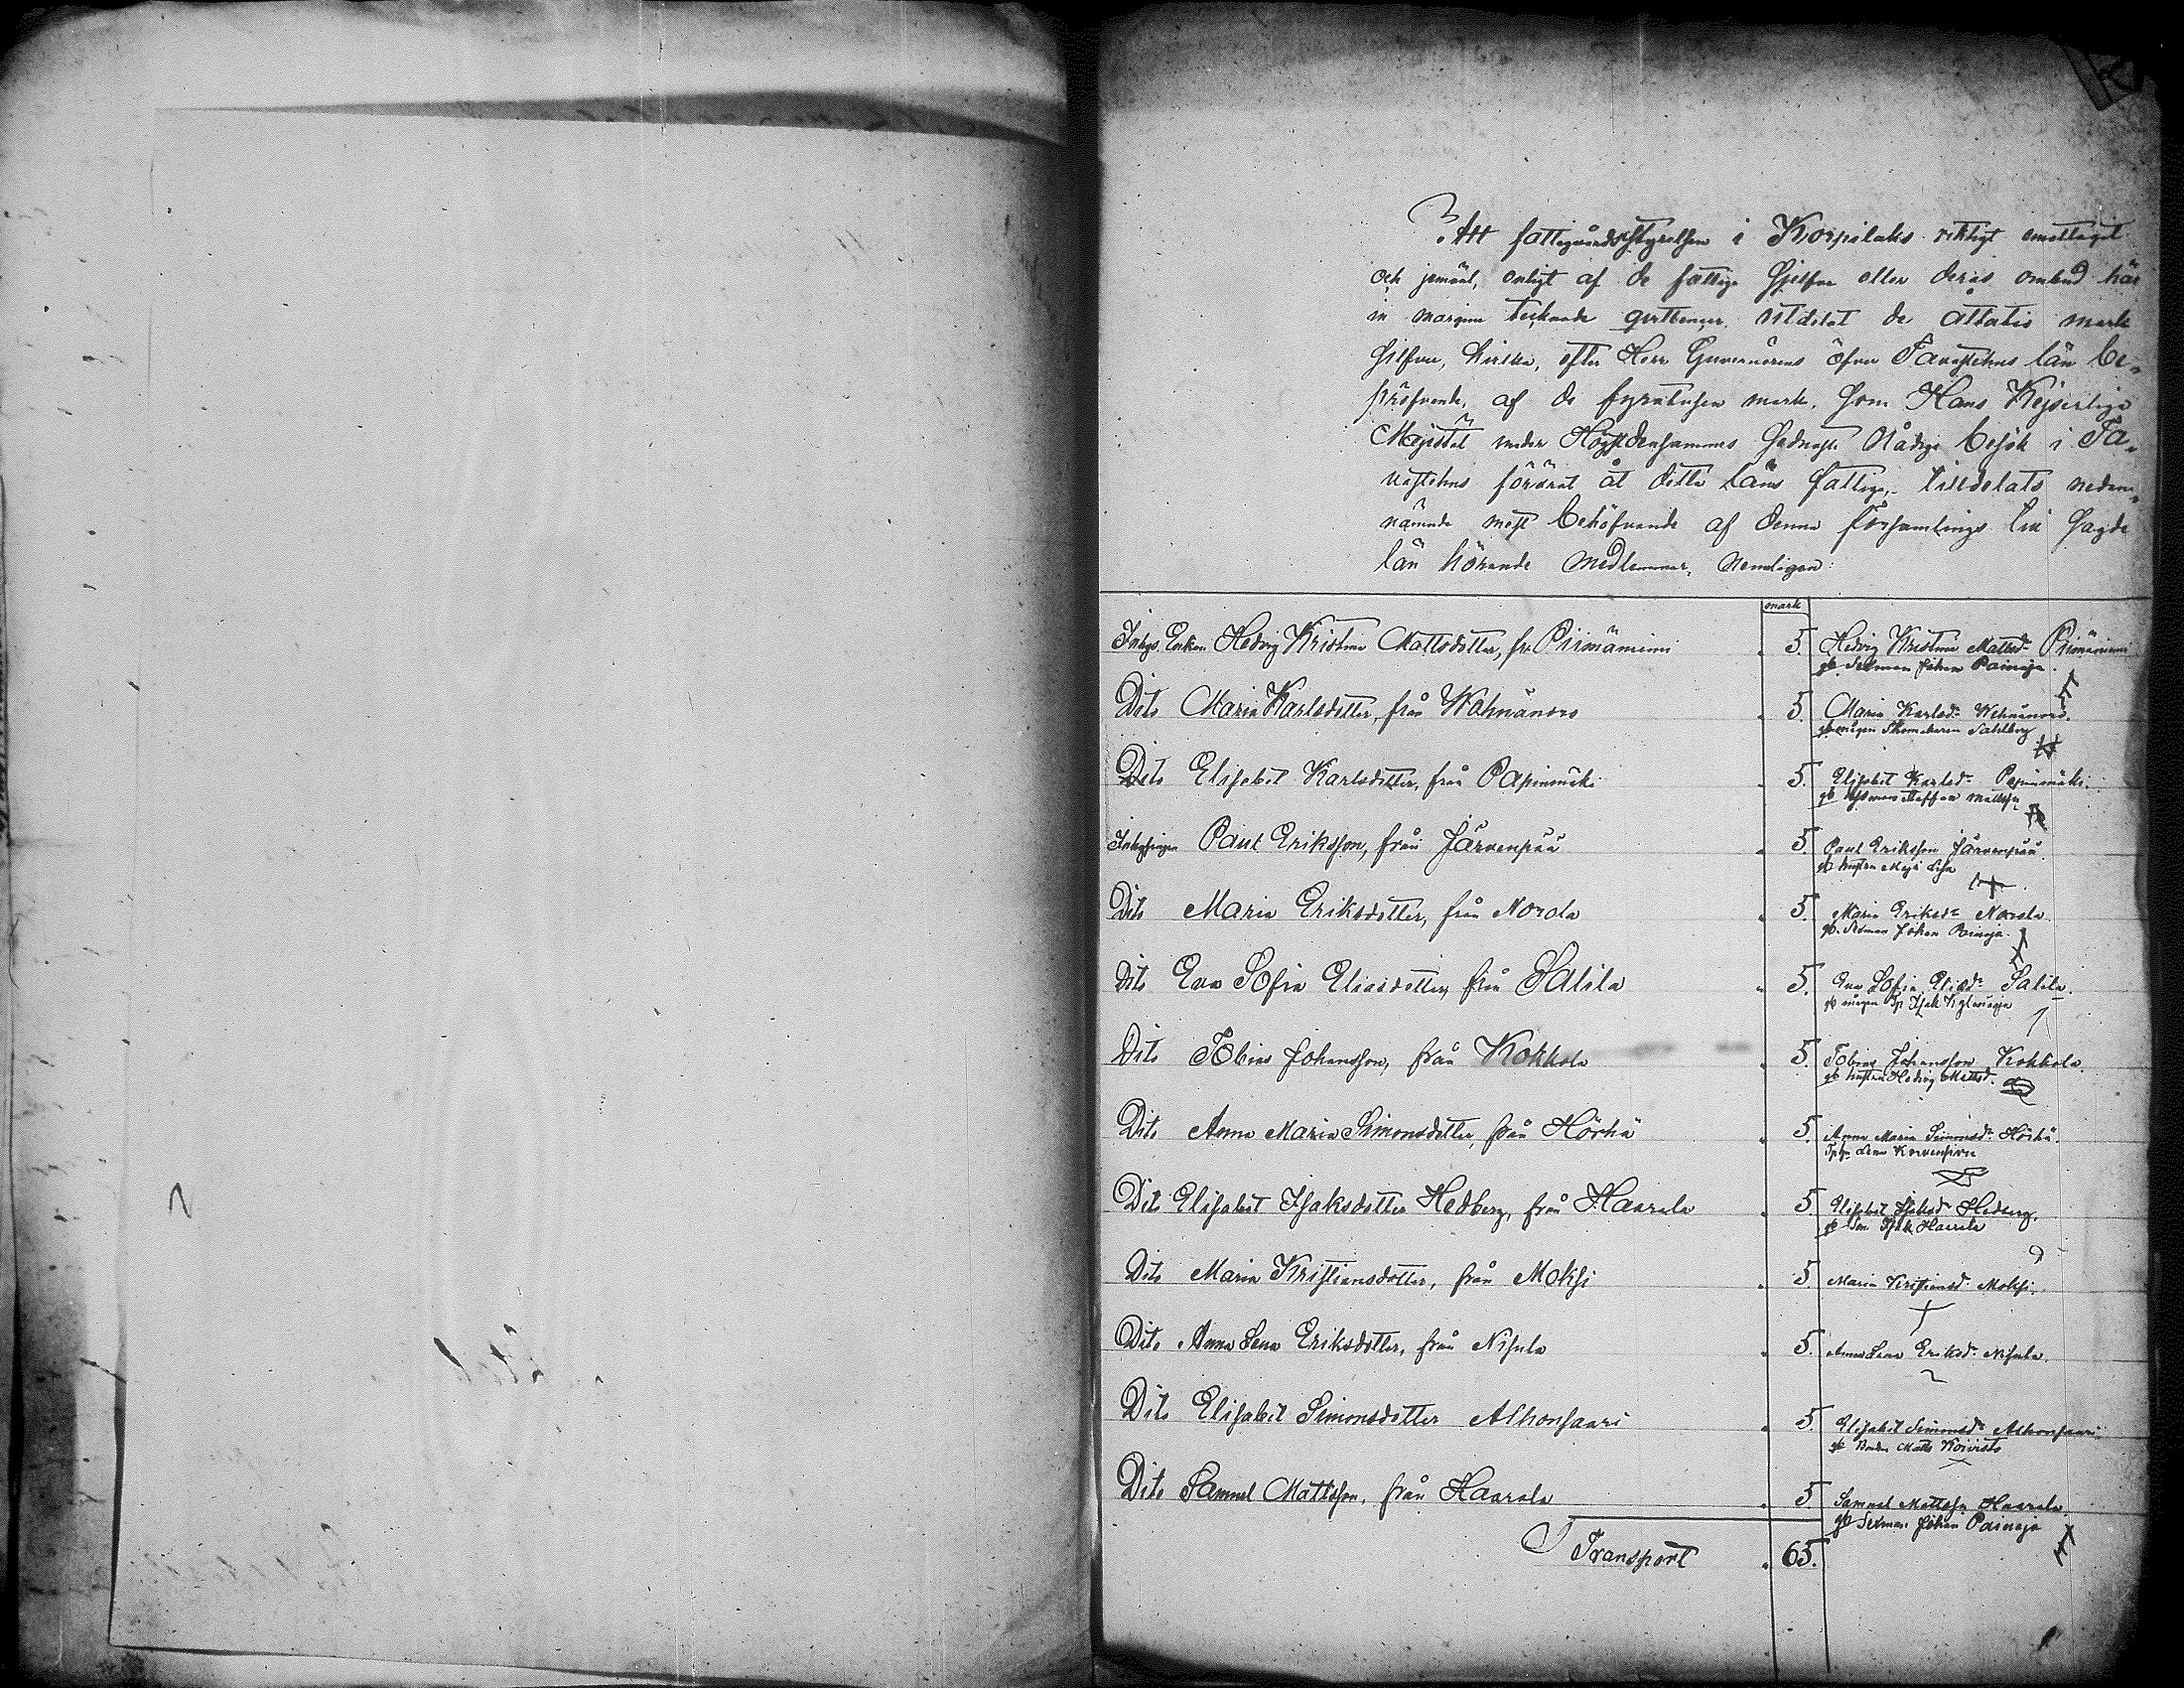 Att fattigvårdsstyrelsen i Korpilaks riktigt emottagit
och jemväl, enligt af de fattige sjelfve eller deras ombud här
in margine tecknade qvittencer, utdelat de åttatio mark
silfver, hvilka, efter Herr Guvernörens öfver Tavastehus län be-
pröfvande, af de fyratusen mark, som Hans Kejserliga
Majestät under Högstdensammes sednaste Nådiga besök i Ta-
vastehus förärat åt detta läns fattige, tilldelats nedan-
nämnde mest behöfvande af denna församlings till sagde
län hörande medlemmar, nemligen:
mark
Inhys. Enkan Hedvig Kristina Mattsdotter, fr. Piimäniemi 5. Hedvig Kristina Mattsdr Piimäniemi
gm Sexman Johan Painaja
Dito Maria Karlsdotter, från Wahnänoro 5. Maria Karlsdr Wahnänoro.
gm mågen Skomakaren Sahlberg
Dito Elisabet Karlsdotter, från Papinmäki 5. Elisabet Karlsdr Papinmäki.
Inhysingen Paul Eriksson, från Järvenpää 5. Paul Eriksson Järvenpää
gm hustrun Maja Lisa
Dito Maria Eriksdotter, från Norola 5. Maria Eriksdr Norola
gm. Sexman Johan Painaja.
Dito Eva Sofia Eliasdotter, från Salila 5. Eva Sofia Eliasdr Salila.
Dito Tobias Johansson, från Kokkola 5. Tobias Johansson Kokkola.
gm hustrun Hedvig Mattsd.
Dito Anna Maria Simonsdotter, från Hörhä 5. Anna Maria Simonsdr Hörhä.
Dito Elisabet Isaksdotter Hedberg, från Haarala 5. Elisabet Isaksdr Hedberg.
gm Isak Haarala
Dito Maria Kristiansdotter, från Moksi 5. Maria Kristiansdr Moksi.
Dito Anna Lena Eriksdotter, från Nisula 5. Anna Lena Eriksdr Nisula.
Dito Elisabet Simonsdotter Alhonsaari 5. Elisabet Simonsdr Alhonsaari
gm Matts Koivisto
Dito Samuel Mattsson, från Haarala 5 Samuel Mattsson Haarala
gm Sexman Johan Painaja
Transport 65.